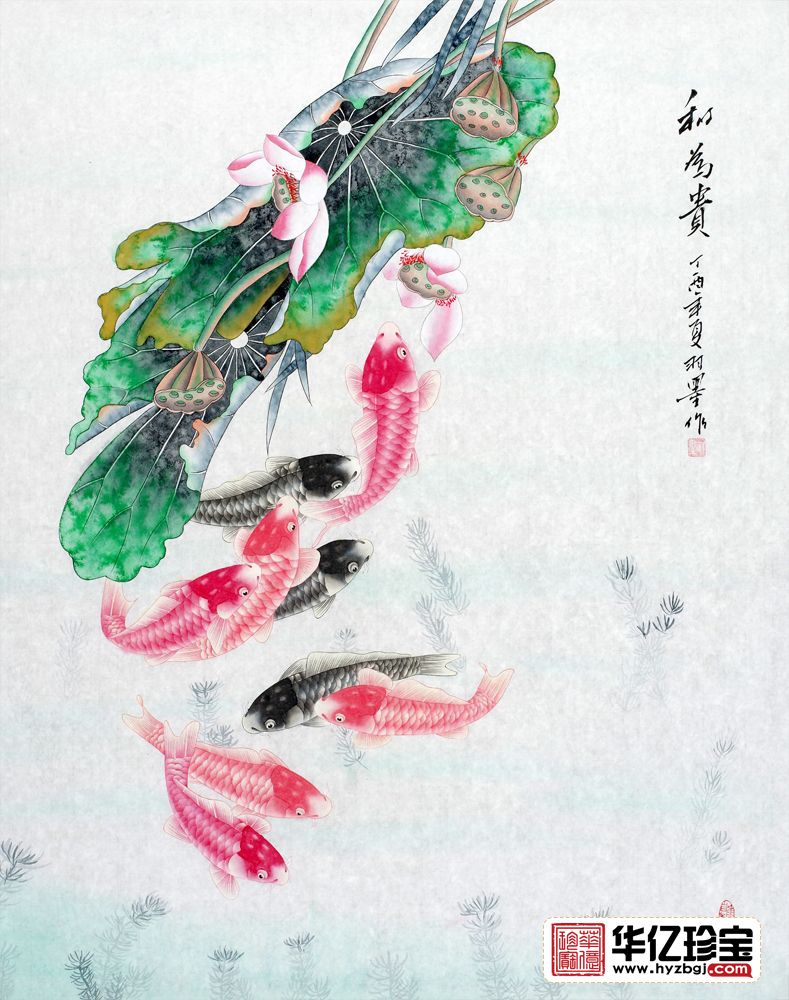 和為貴
丁酉年夏羽墨作
华亿珍宝
www.hyzbgj.com